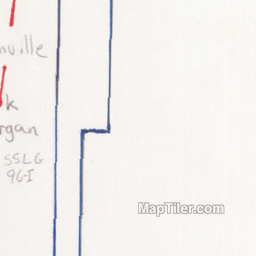 nville
k
rgan
SSLG
96-I
MapTiler.com